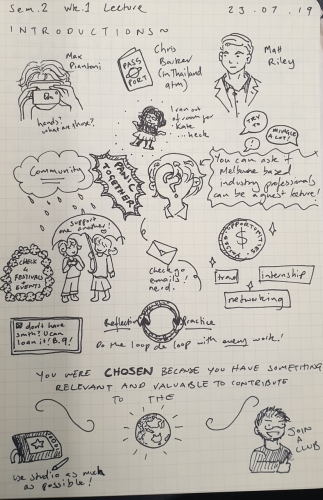 Sem.2 Wk.1 Lecture
23.07.19
INTRODUCTIONS~
Max
Piantoni
PASS
PORT
Chris
Barker
(in Thailand
atm)
Matt
Riley
hands!
what are those?
I ran out
of room for
Kate
...heck
TRY
MINGLE
A LOT!
Community
PANIC
TOGETHER!
You can ask
Melbourne based
industry professionals
can be a guest lecture!
support
one another!
CHECK
4
FESTIVALS
EVENTS
check yo
emails!
nerd.
OPPORTUNITIES
travel
internship
networking
don't have
smth? U can
loan it! B.9!
Reflection
Practice
Do the loop de loop with every work!
YOU WERE CHOSEN BECAUSE YOU HAVE SOMETHING
RELEVANT AND VALUABLE TO CONTRIBUTE
TO THE
JOIN
A
CLUB
use studio as much
as possible!